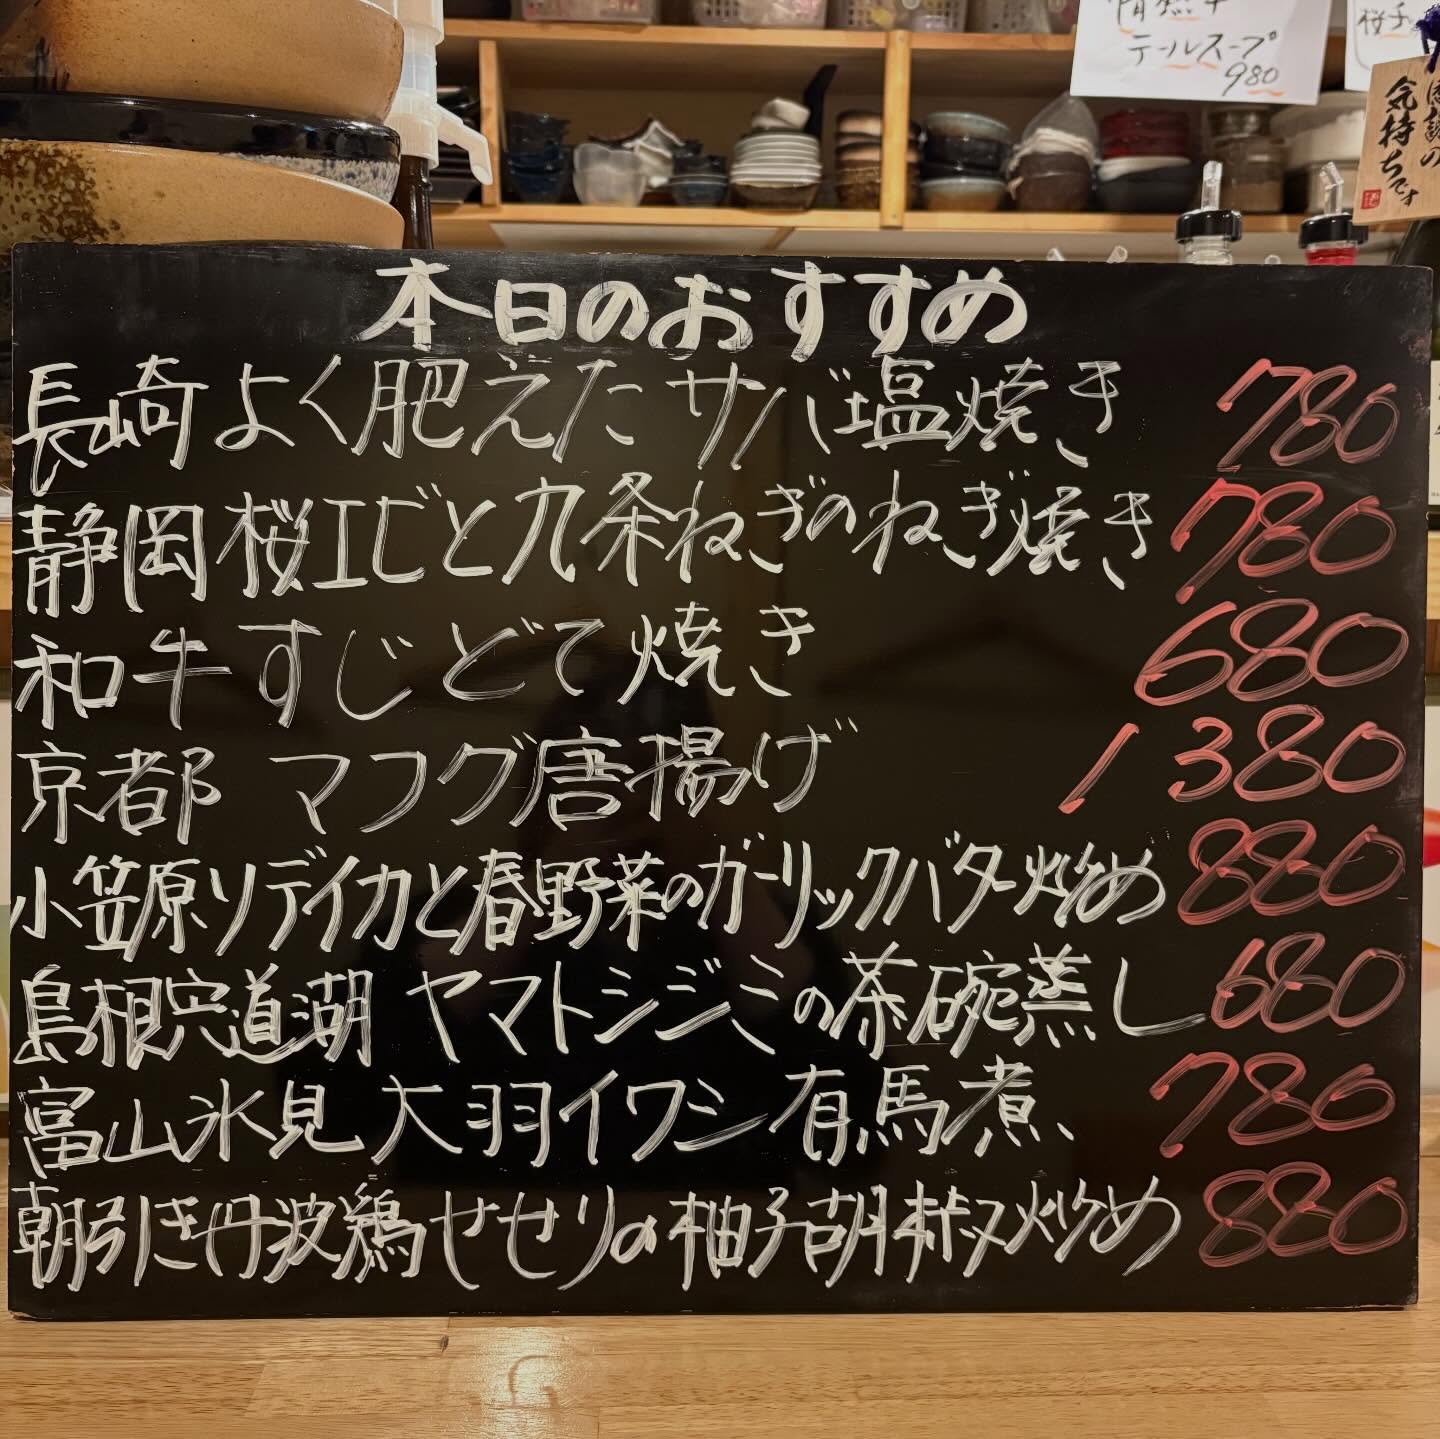 テールスープ
980
気持ちです
本日のおすすめ
長崎 よく肥えたサバ塩焼き 780
静岡 桜エビと九条ねぎのねぎ焼き 780
和牛すじどて焼き 680
京都 マフグ唐揚げ 1380
小笠原ソデイカと春野菜のガーリックバター炒め 880
島根宍道湖 ヤマトシジミの茶碗蒸し 680
富山氷見 大羽イワシ有馬煮 780
朝引き丹波鶏せせりの柚子胡椒炒め 880